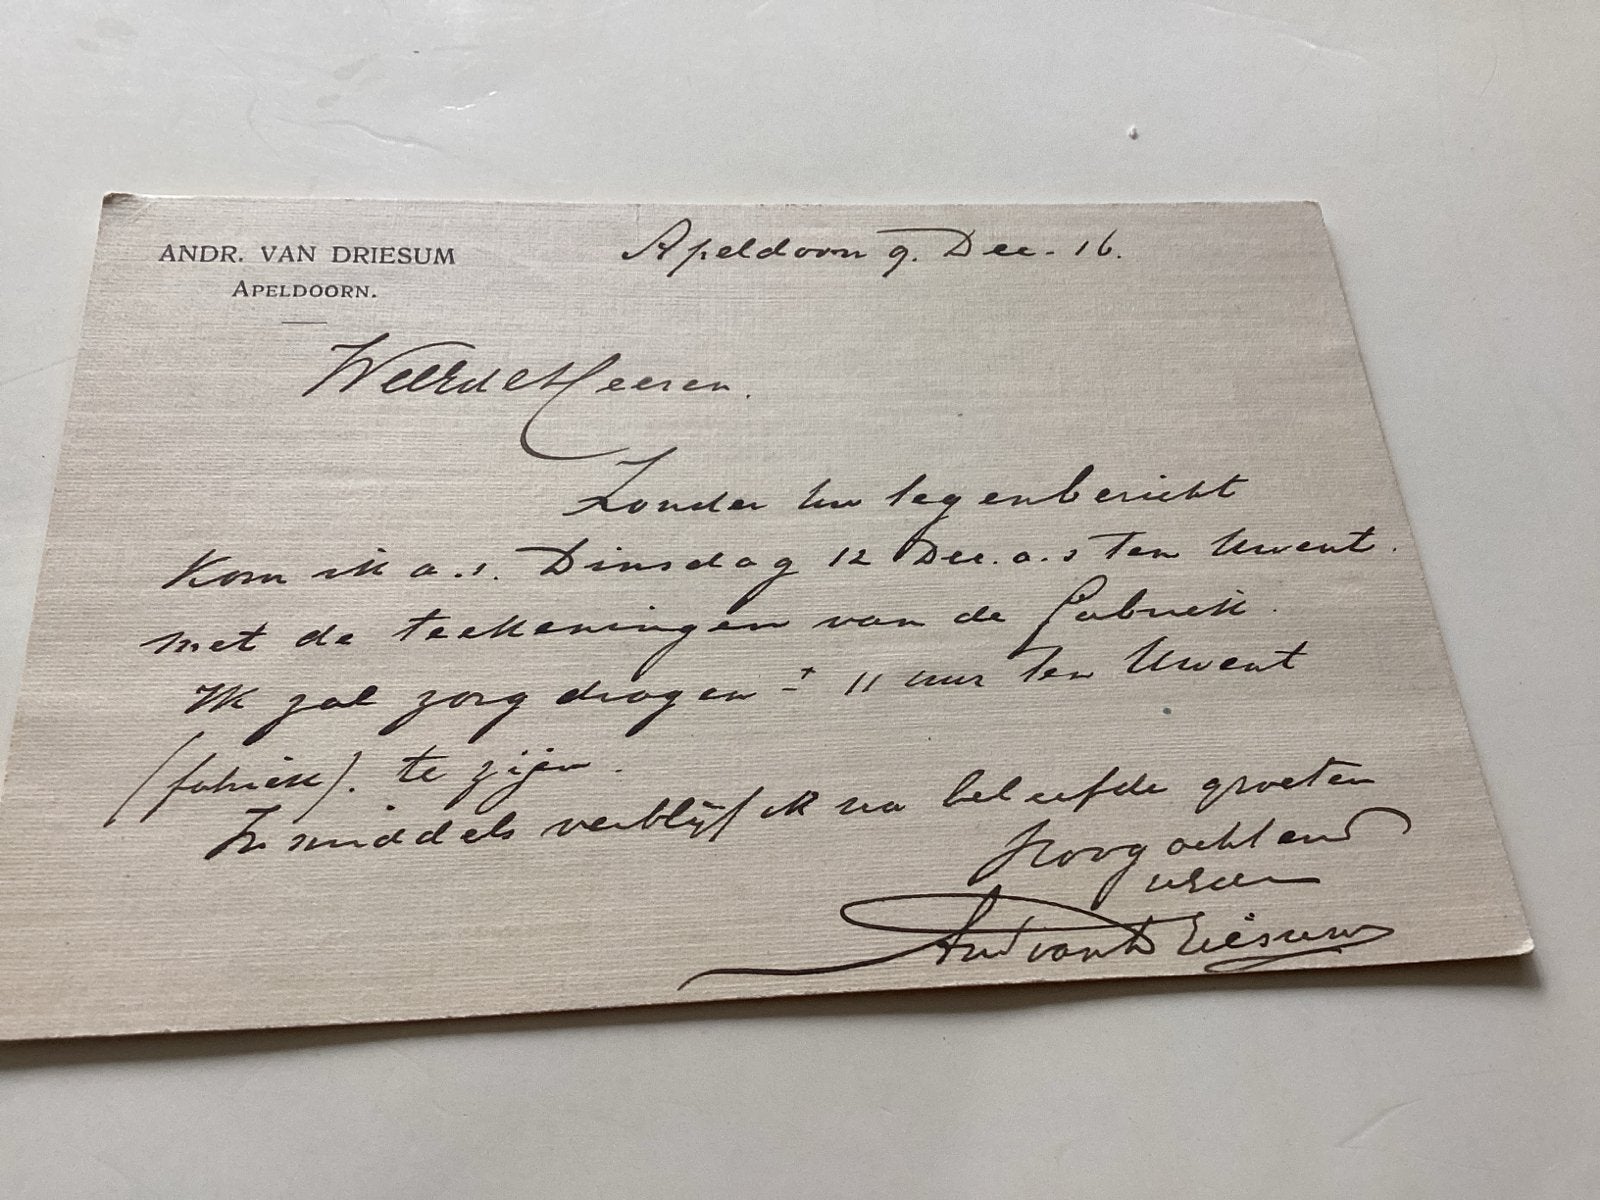 ANDR. VAN DRIESUM
APELDOORN.
Apeldoorn 9. Dec. 16.
Weled Heeren.
Zonder Uw tegenbericht
Kom ik a.s. Dinsdag 12 Dec. a.s ten Uwent.
met de teekeningen van de fabriek.
Ik zal zorg dragen ± 11 uur ten Uwent
(fabriek). te zijn.
Inmiddels verblijf ik na beleefde groeten
Hoogachtend
And van Driesum